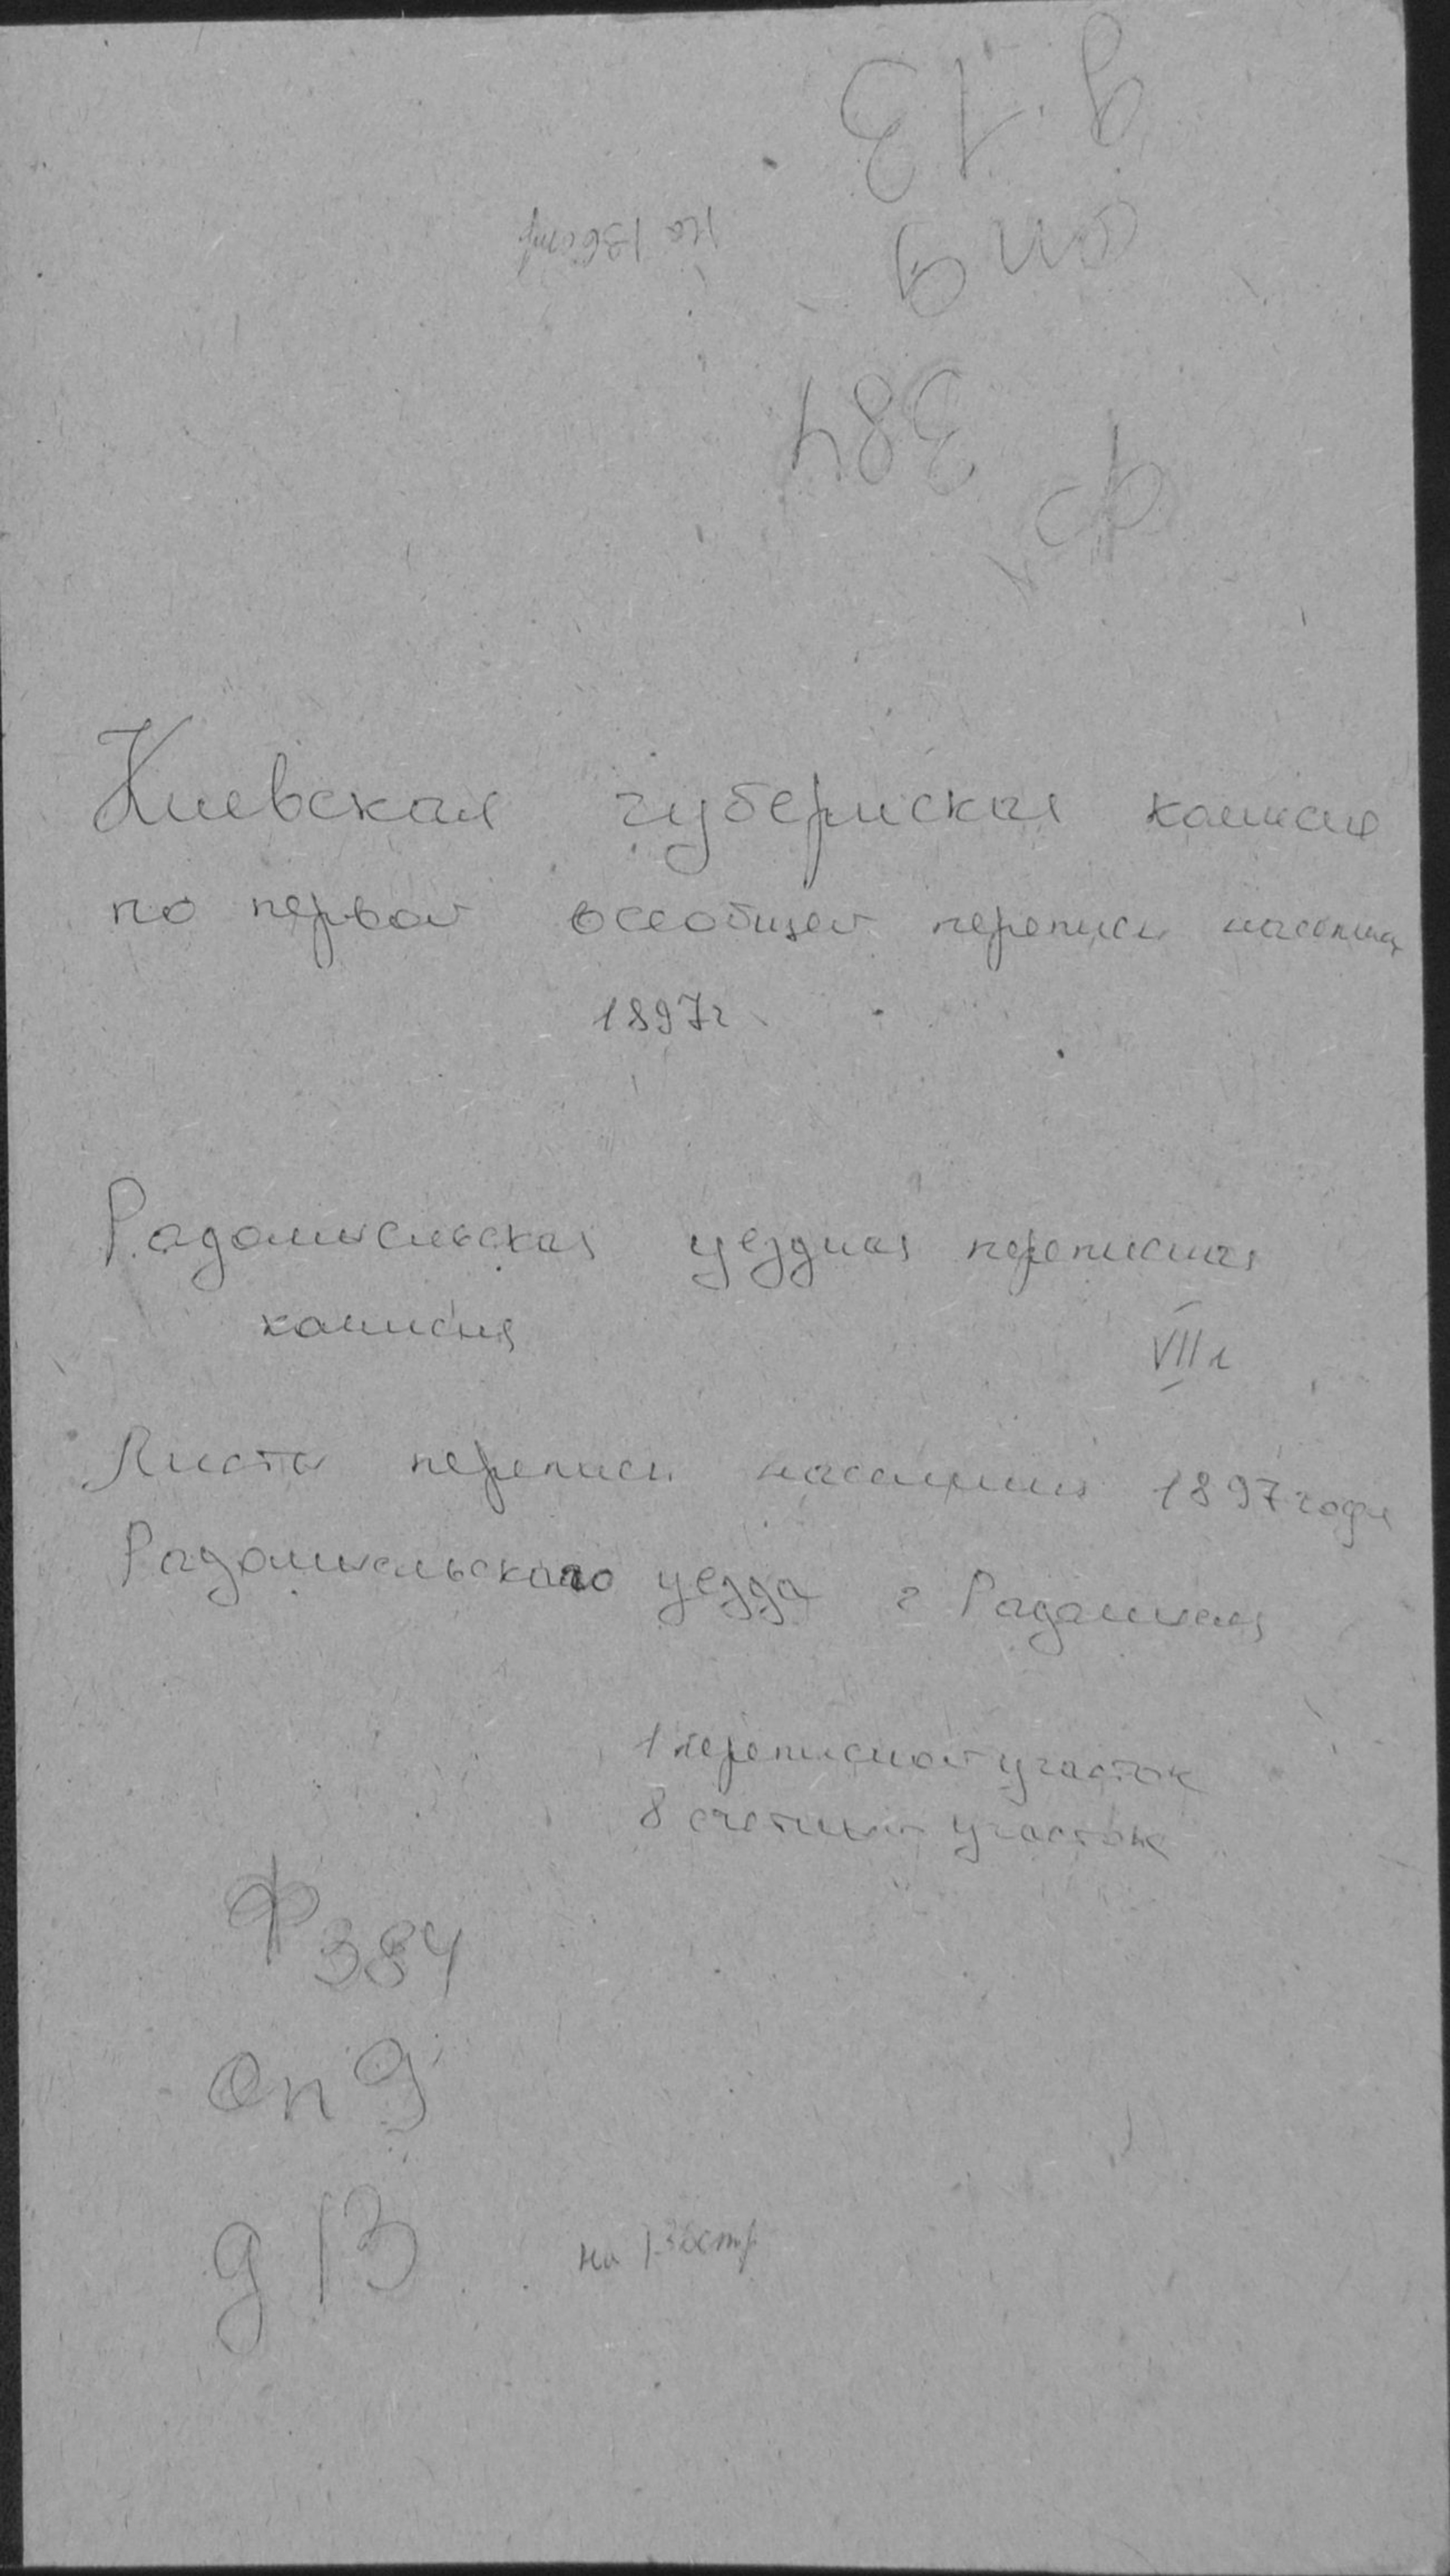 д. 13
оп 9
на 136 стр
384
ф.
Киевская губернская комисия
по первой всеобщей переписи населения
1897г
Радомысльская уездная переписная
комисия
VII
Листы переписи населения 1897 года
Радомысльского уезда г Радомысль
1 переписной участок
8 счетный участок
Ф 384
Оп 9
д 13
на 136 стр